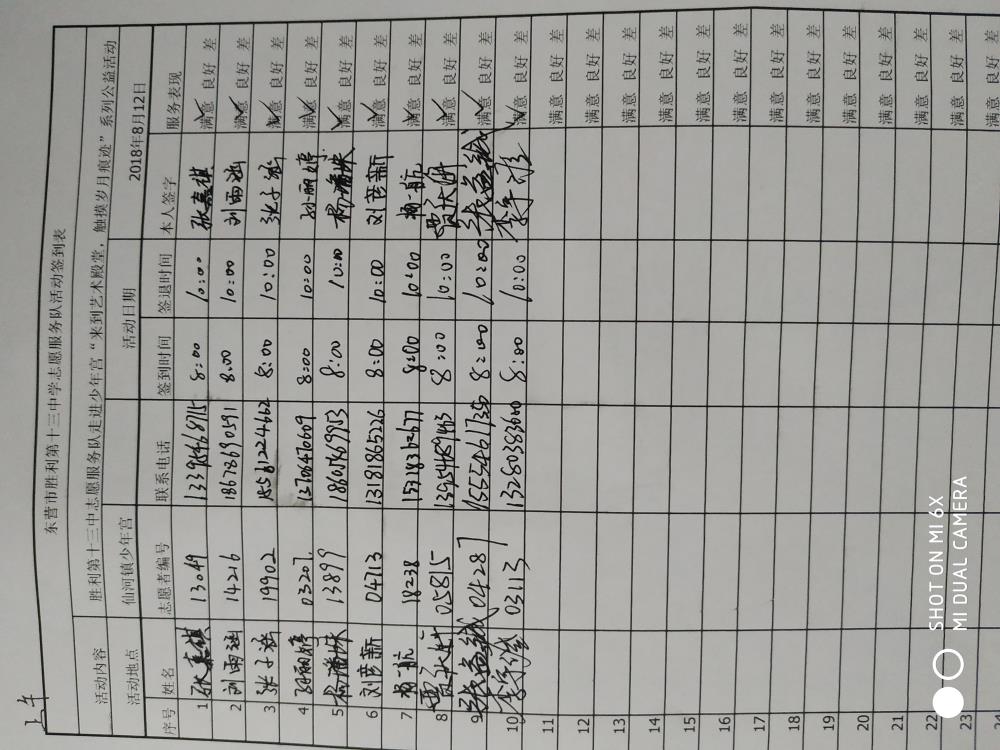 上午
东营市胜利第十三中学志愿服务队活动签到表
活动内容 胜利第十三中志愿服务队走进少年宫“来到艺术殿堂，触摸岁月痕迹”系列公益活动
活动地点 仙河镇少年宫 活动日期 2018年8月12日
序号 姓名 志愿者编号 联系电话 签到时间 签退时间 本人签字 服务表现
1 张嘉祺 13049 8:00 10:00 张嘉祺 满意 良好 差
2 刘雨涵 14216 18678690591 8:00 10:00 刘雨涵 满意 良好 差
3 张子涵 19902 18561224662 8:00 10:00 张子涵 满意 良好 差
4 孙丽婷 03207 13706470609 8:00 10:00 孙丽婷 满意 良好 差
5 13899 8:00 10:00 满意 良好 差
6 刘彦新 04713 13181865226 8:00 10:00 刘彦新 满意 良好 差
7 杨一航 18238 8:00 10:00 杨一航 满意 良好 差
8 05815 8:00 10:00 满意 良好 差
9 04287 15554617350 8:00 10:00 满意 良好 差
10 03113 13280383600 8:00 10:00 满意 良好 差
11 满意 良好 差
12 满意 良好 差
13 满意 良好 差
14 满意 良好 差
15 满意 良好 差
16 满意 良好 差
17 满意 良好 差
18 满意 良好 差
19 满意 良好 差
20 满意 良好 差
21 满意 良好 差
22 满意 良好 差
23 满意 良好 差
24 满意 良好 差
SHOT ON MI 6X
MI DUAL CAMERA